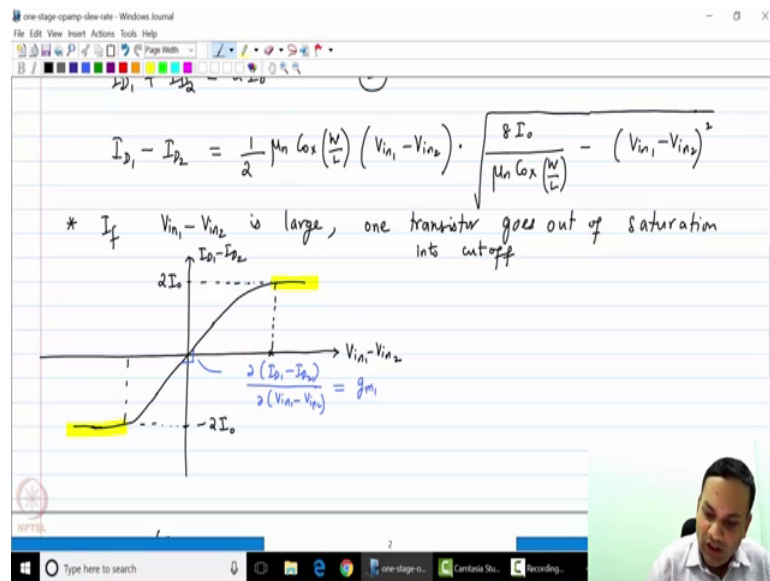 one-stage-opamp-slew-rate - Windows Journal
File Edit View Insert Actions Tools Help
Page Width
B I
I_D1 - I_D2 = 1/2 μn Cox (W/L) (Vin1 - Vin2) · √( 8 I0 / (μn Cox (W/L)) - (Vin1 - Vin2)² )
* If Vin1 - Vin2 is large, one transistor goes out of saturation
into cutoff
I_D1 - I_D2
2I0
Vin1 - Vin2
∂(I_D1 - I_D2) / ∂(Vin1 - Vin2) = gm1
-2I0
NPTEL
2
Type here to search
one-stage-o...
Camtasia Stu...
Recording...